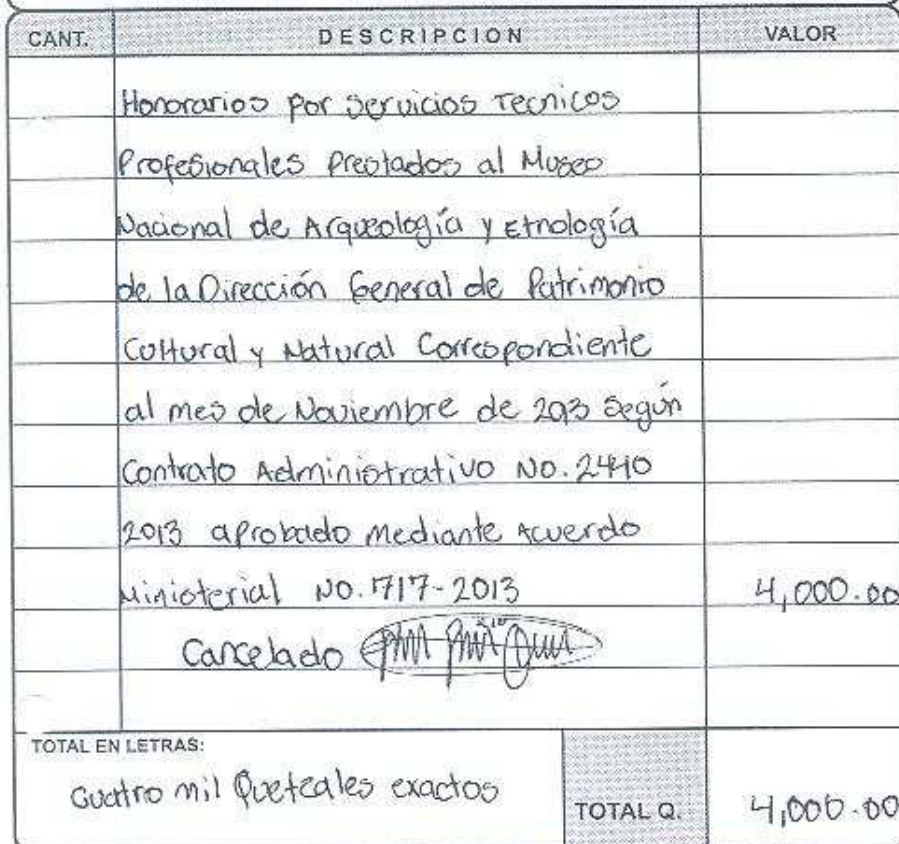 CANT. DESCRIPCION VALOR
Honorarios por servicios Tecnicos
Profesionales Prestados al Museo
Nacional de Arqueología y Etnología
de la Dirección General de Patrimonio
Cultural y Natural Correspondiente
al mes de Noviembre de 2013 Según
Contrato Administrativo No.
2013 aprobado mediante Acuerdo
Ministerial No. 717-2013 4,000.00
Cancelado
TOTAL EN LETRAS:
Cuatro mil Quetzales exactos
TOTAL Q. 4,000.00